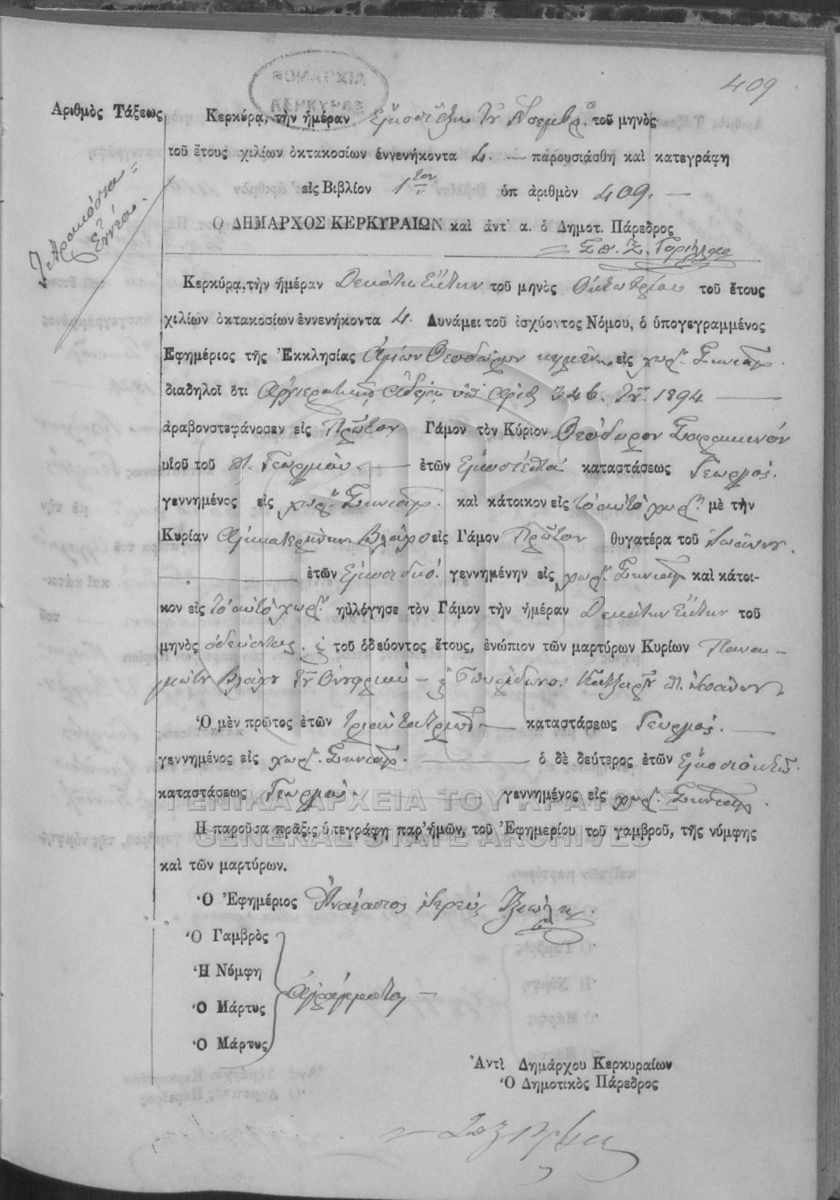 409
ΝΟΜΑΡΧΙΑ
ΚΕΡΚΥΡΑΣ
Ἀριθμὸς Τάξεως
Τετρακόσια
Ἐννέα.
Κερκύρᾳ, τὴν ἡμέραν τοῦ μηνὸς
τοῦ ἔτους χιλίων ὀκτακοσίων ἐννενήκοντα 4. — παρουσιάσθη καὶ κατεγράφη
εἰς Βιβλίον 1ον ὑπ ἀριθμὸν 409. —
Ὁ ΔΗΜΑΡΧΟΣ ΚΕΡΚΥΡΑΙΩΝ καὶ ἀντ' α. ὁ Δημοτ. Πάρεδρος
Κερκύρᾳ, τὴν ἡμέραν Δεκάτην Ἕκτην τοῦ μηνὸς Ὀκτωβρίου τοῦ ἔτους
χιλίων ὀκτακοσίων ἐννενήκοντα 4. Δυνάμει τοῦ ἰσχύοντος Νόμου, ὁ ὑπογεγραμμένος
Ἐφημέριος τῆς Ἐκκλησίας Ἁγίων Θεοδώρων κειμένης εἰς χωρ. Σινιες
διαδηλοῖ ὅτι Ἀρχιερατικῇ ἀδείᾳ ὑπ' ἀριθ 346. 1894 —
ἀραβονστεφάνοσεν εἰς Πρῶτον Γάμον τὸν Κύριον Θεόδωρον Σαρακινὸν
υἱοῦ τοῦ π. Γεωργίου — ἐτῶν Εἰκοσιεπτὰ καταστάσεως Γεωργός.
γεννημένος εἰς χωρ. Σινιες. καὶ κάτοικον εἰς τὸ αὐτὸ χωρ. μὲ τὴν
Κυρίαν Αἰκατερίνην Βλάχο εἰς Γάμον Πρῶτον θυγατέρα τοῦ Ἰωάννου.
— ἐτῶν Εἰκοσιδύο. γεννημένην εἰς χωρ. Σινιες καὶ κάτοι-
κον εἰς τὸ αὐτὸ χωρ. ηὐλόγησε τὸν Γάμον τὴν ἡμέραν Δεκάτην Ἕκτην τοῦ
μηνὸς ὁδεύοντος. τοῦ ὁδεύοντος ἔτους, ἐνώπιον τῶν μαρτύρων Κυρίων Πανα-
γιώτην Βλάχον τοῦ Ὀνουφρίου — Σπυρίδωνος
Ὁ μὲν πρῶτος ἐτῶν — καταστάσεως Γεωργός. —
γεννημένος εἰς χωρ. Σινιες. — ὁ δὲ δεύτερος ἐτῶν Εἰκοσιοκτώ
καταστάσεως Γεωργός. γεννημένος εἰς χωρ. Σινιες.
ΓΕΝΙΚΑ ΑΡΧΕΙΑ ΤΟΥ ΚΡΑΤΟΥΣ
GENERAL STATE ARCHIVES
Ἡ παροῦσα πρᾶξις ὑπεγράφη παρ' ἡμῶν, τοῦ Ἐφημερίου τοῦ γαμβροῦ, τῆς νύμφης
καὶ τῶν μαρτύρων.
Ὁ Ἐφημέριος Ἀναστάσιος Ἱερεὺς
Ὁ Γαμβρὸς
Ἡ Νύμφη
Ὁ Μάρτυς
Ὁ Μάρτυς
Ἀγράμματοι —
Ἀντὶ Δημάρχου Κερκυραίων
Ὁ Δημοτικὸς Πάρεδρος